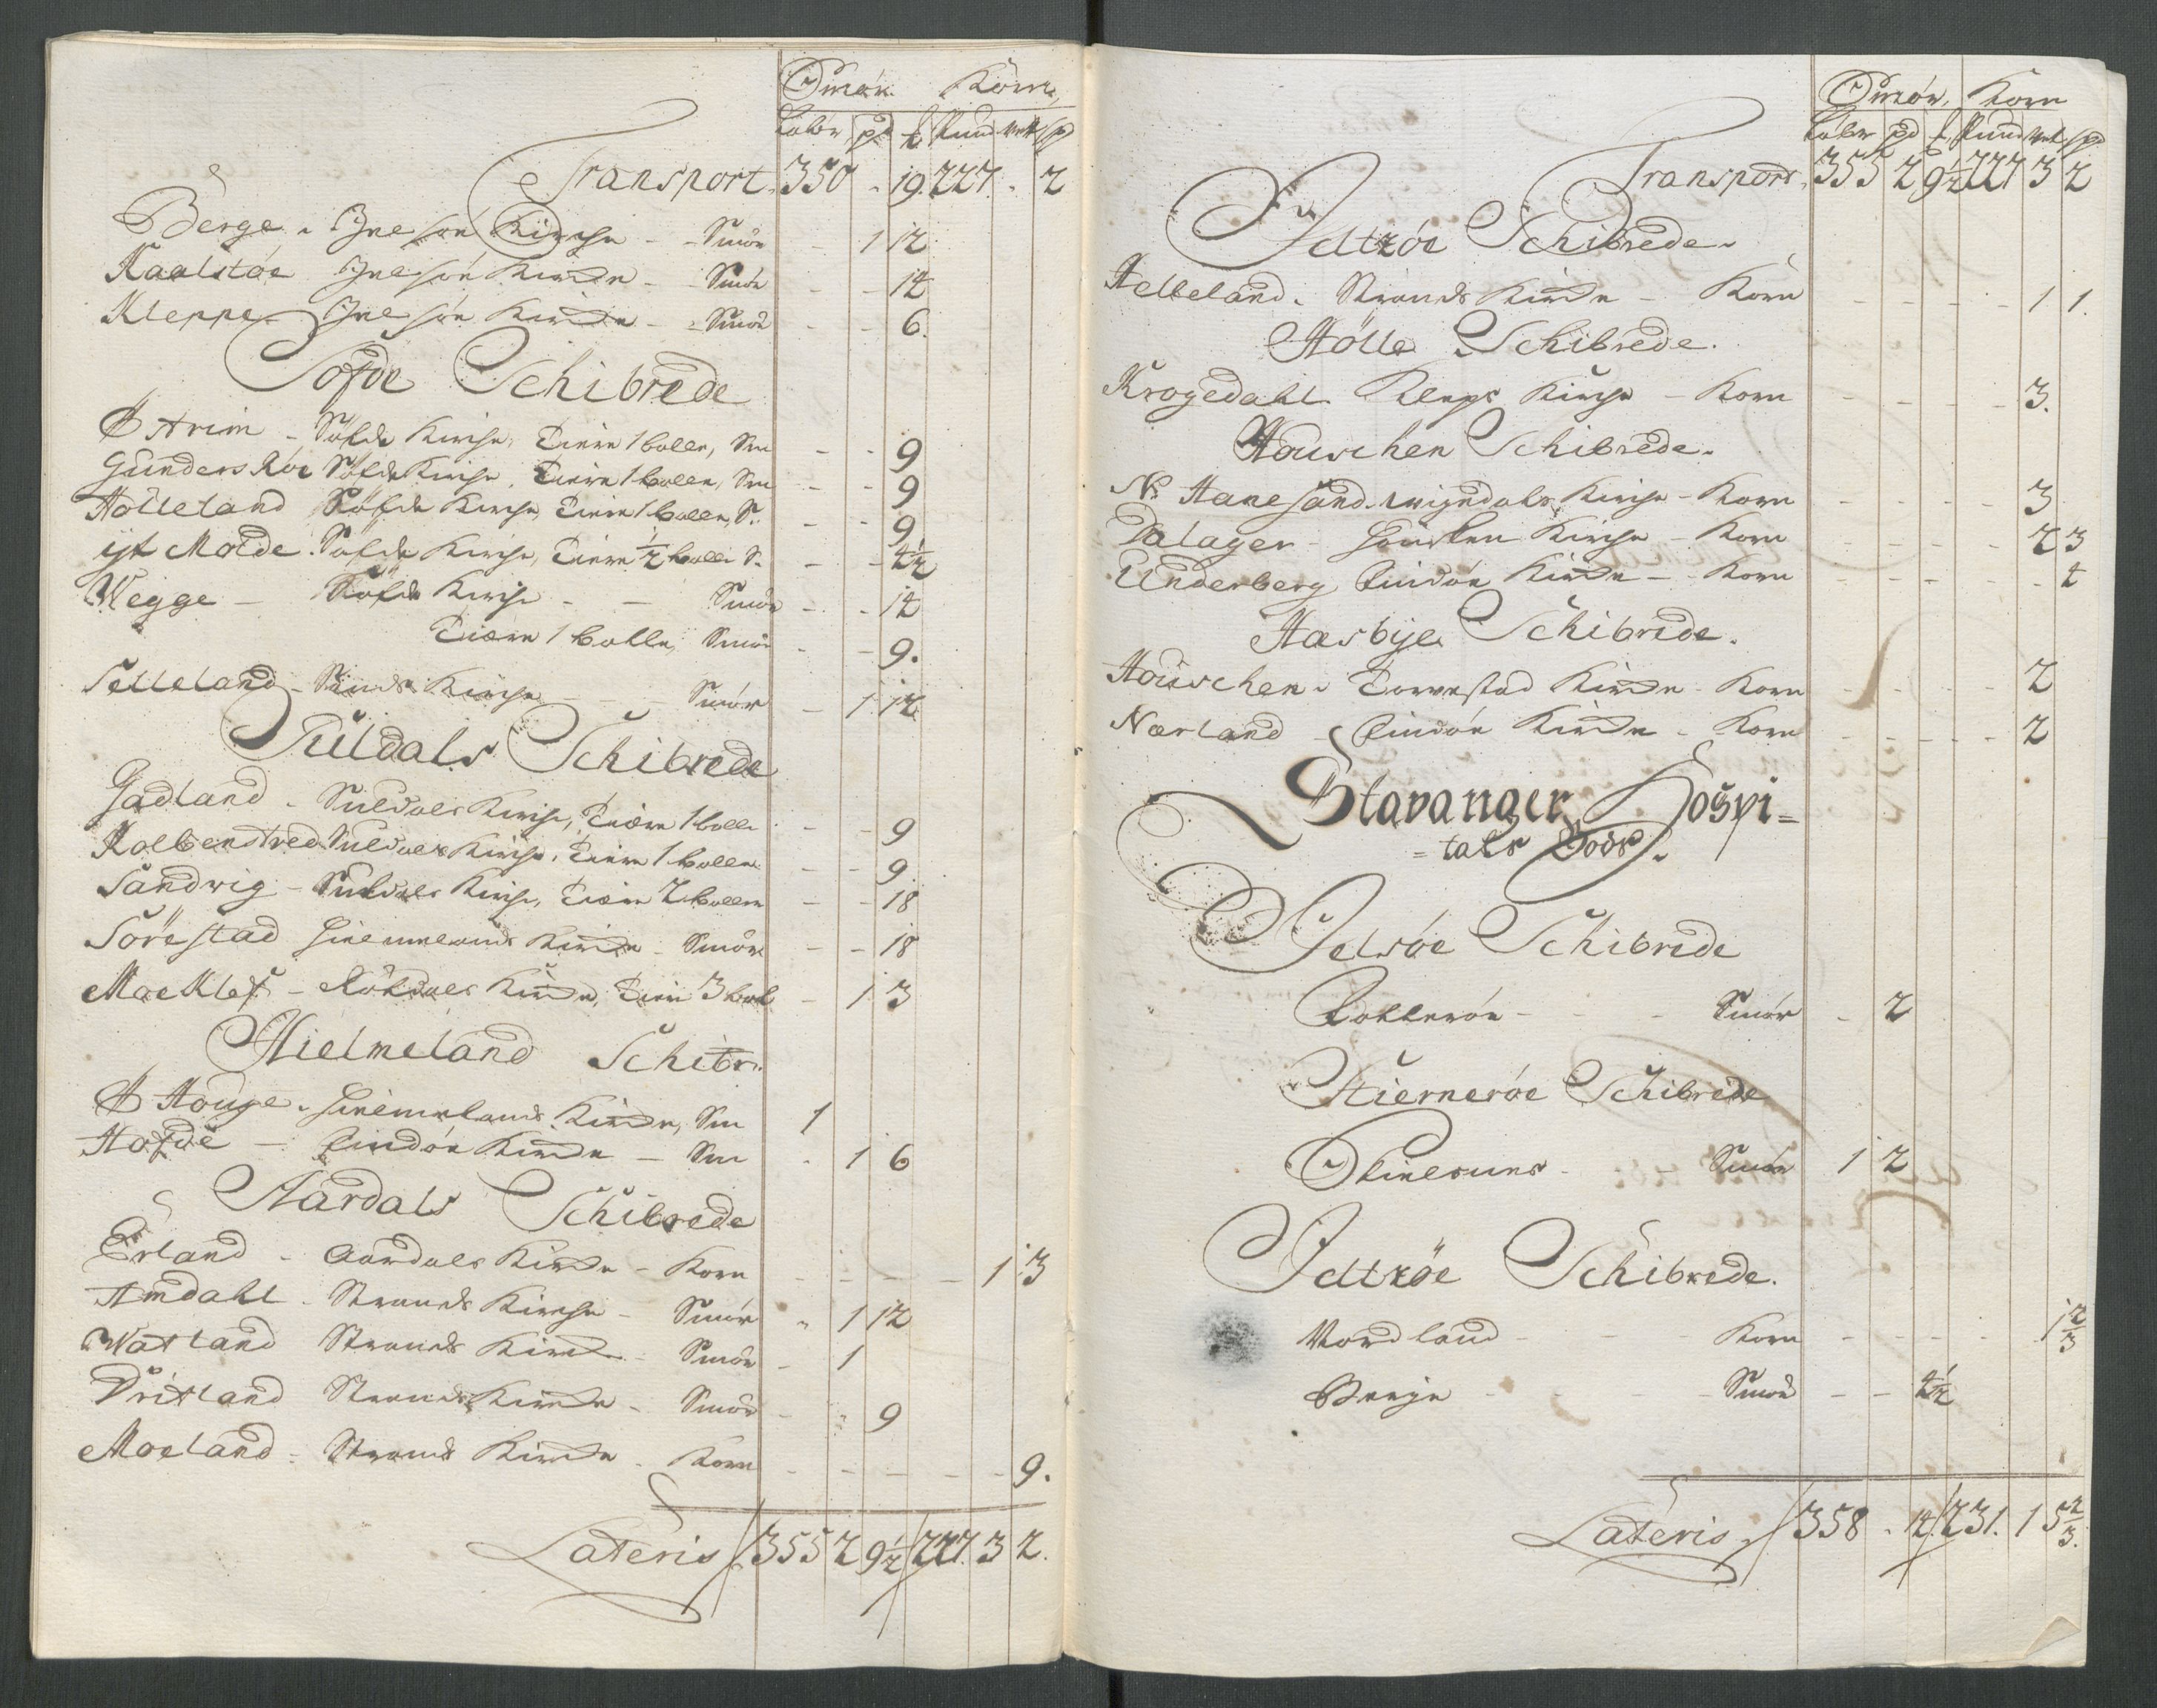 Smør Korn
Løber pd ℔ Pund Vet Sp
Transport 350 - 19. 227. - 2
Berge - Jnelsøn Kirche - Smør - 1 12
Kaalstøe Jnelsøn Kirche - Smør - - 12
Kleppe - Jnelsøn Kirche - Smør - - 6.
Sofde Schibrede
Atrim - Søfde Kirche, Tiære 1 bolle, Sm - - 9
Gunderskór Søfde Kirche, Tiære 1 bolle, Sm - - 9
Hølleland Søfde Kirche, Tiære 1 bolle, S. - - 9
yt Molde Søfde Kirche, Tiære ½ bolle S. - - 4½
Wegge - Søfde Kirche - Smør - - 12
Tiære 1 bolle, Smør - - 9.
Selleland - Sands Kirche - Smør - 1 12
Suldals Schibrede
Gadland - Suldals Kirche, Tiære 1 bolle - - 9
Kolbentved Suldals Kirche, Tiære 1 bolle - - 9.
Sandvig - Suldals Kirche, Tiære 2 bolle - - 18
Sørestad Hielmelands Kirche - Smør - - 18
Moe Klef - Røldals Kirche, Tiære 3 bol - 1 3
Hielmeland Schibr.
Houge - Hielmelands Kirche, Sm 1
Hofde - Findøe Kirche - Sm - 1 6
Aardals Schibrede
Erland - Aardals Kirche - Korn - - - - 1 3
Amdahl - Strands Kirche - Smør - 1 12
Watland Strands Kirche - Smør - 1
Dritland Strands Kirche - Smør - - 9
Moeland - Strands Kirche - Korn - - - - - 9.
Lateris 355 2 9½ 227. 3 2.
Smør Korn
Løber pd ℔ Pund Vet Sp
Transport 355 2 9½ 227 3 2
Jdtzøe Schibrede
Helleland - Strands Kirche - Korn - - - - 1 1.
Hølle Schibrede.
Krogedahl Kleps Kirche - Korn - - - - 3.
Houschen Schibrede.
N. Hanesand Wigndals Kirche - Korn - - - - 3
Dalager - Houschen Kirche - Korn - - - - 2 3
Underberg Findøe Kirche - Korn - - - - - 4
Hæsbye Schibrede.
Houschen - Torvestad Kirche - Korn - - - - 2
Nærland - Findøe Kirche - Korn - - - - 2
Stavanger Hospi=
=tals Gods.
Jelsøe Schibrede
Foklerøe - - - Smør - 2
Stiernerøe Schibrede
Smør 1 2
Jdtzøe Schibrede.
Vordland - - Korn - - - - - 1⅔
Berge - - Smør - - 4½
Lateris 358 - 14. 231. 1 5⅔.